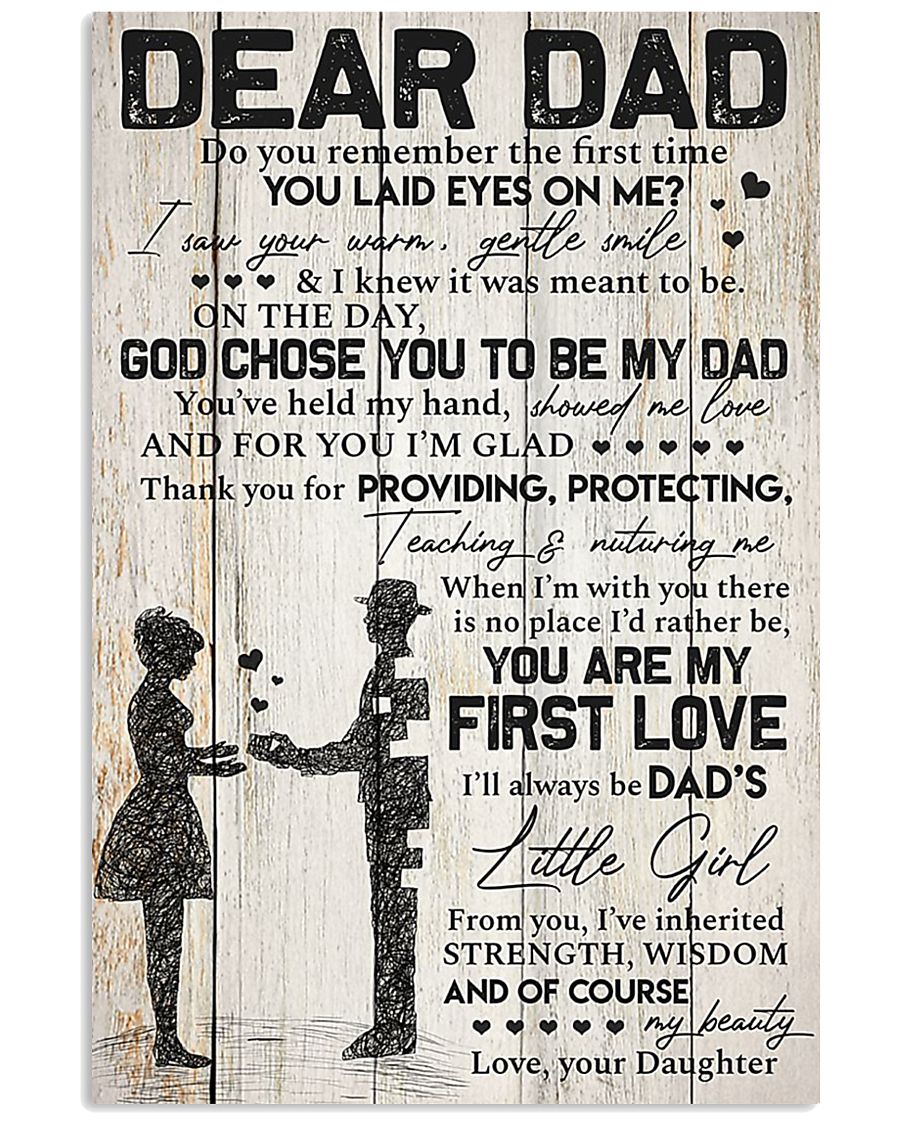 DEAR DAD
Do you remember the first time
YOU LAID EYES ON ME?
I saw your warm, gentle smile
& I knew it was meant to be.
ON THE DAY,
GOD CHOSE YOU TO BE MY DAD
You've held my hand, showed me love
AND FOR YOU I'M GLAD
Thank you for PROVIDING, PROTECTING,
Teaching & nuturing me
When I'm with you there
is no place I'd rather be,
YOU ARE MY
FIRST LOVE
I'll always be DAD'S
Little Girl
From you, I've inherited
STRENGTH, WISDOM
AND OF COURSE
my beauty
Love, your Daughter